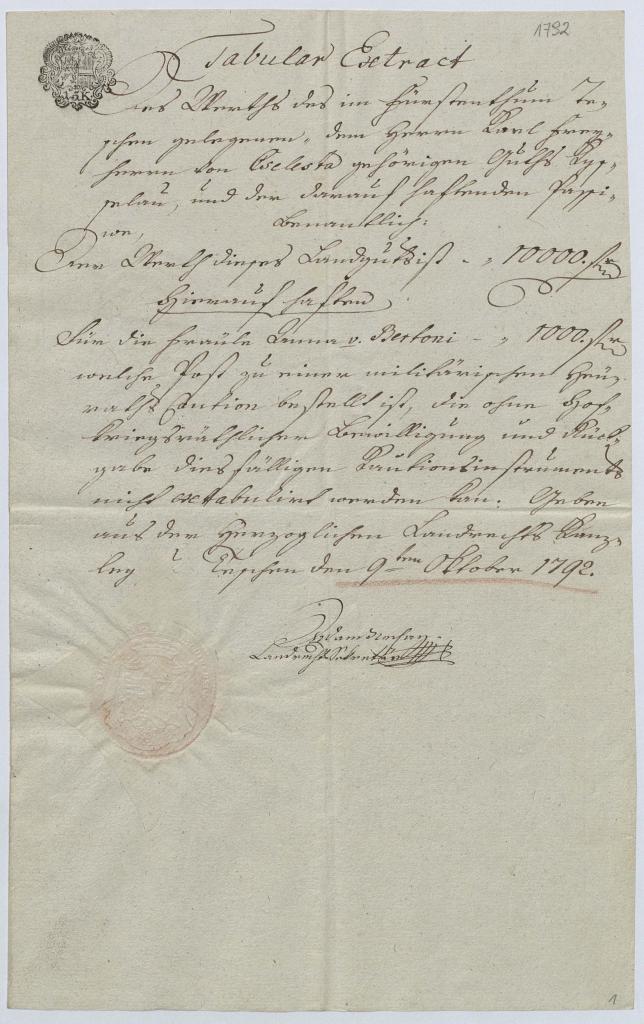 1792
15 K
Tabular Extract
Des Werths des im Fürstenthum Te-
schen gelegenen, dem Herrn Karl Frey-
herrn von Celesta gehörigen Guths
und der darauf haftenden Passi-
ve, Benanntlich:
Der Werth dieses Landguts ist - " 10000. fr
Hierauf haften
Für die Fräule Anna v. Bertoni - " 1000. fr
welche Post zu einer militärischen Heu-
raths Caution bestellt ist, die ohne Hof-
kriegsräthlicher Bewilligung und Rück-
gabe diesfälligen Kautionsinstruments
nicht extabulirt werden kan. Geben
aus der Herzoglichen Landrechts Kanz-
ley Teschen den 9ten Oktober 1792.
Landrechts Sekretär
1